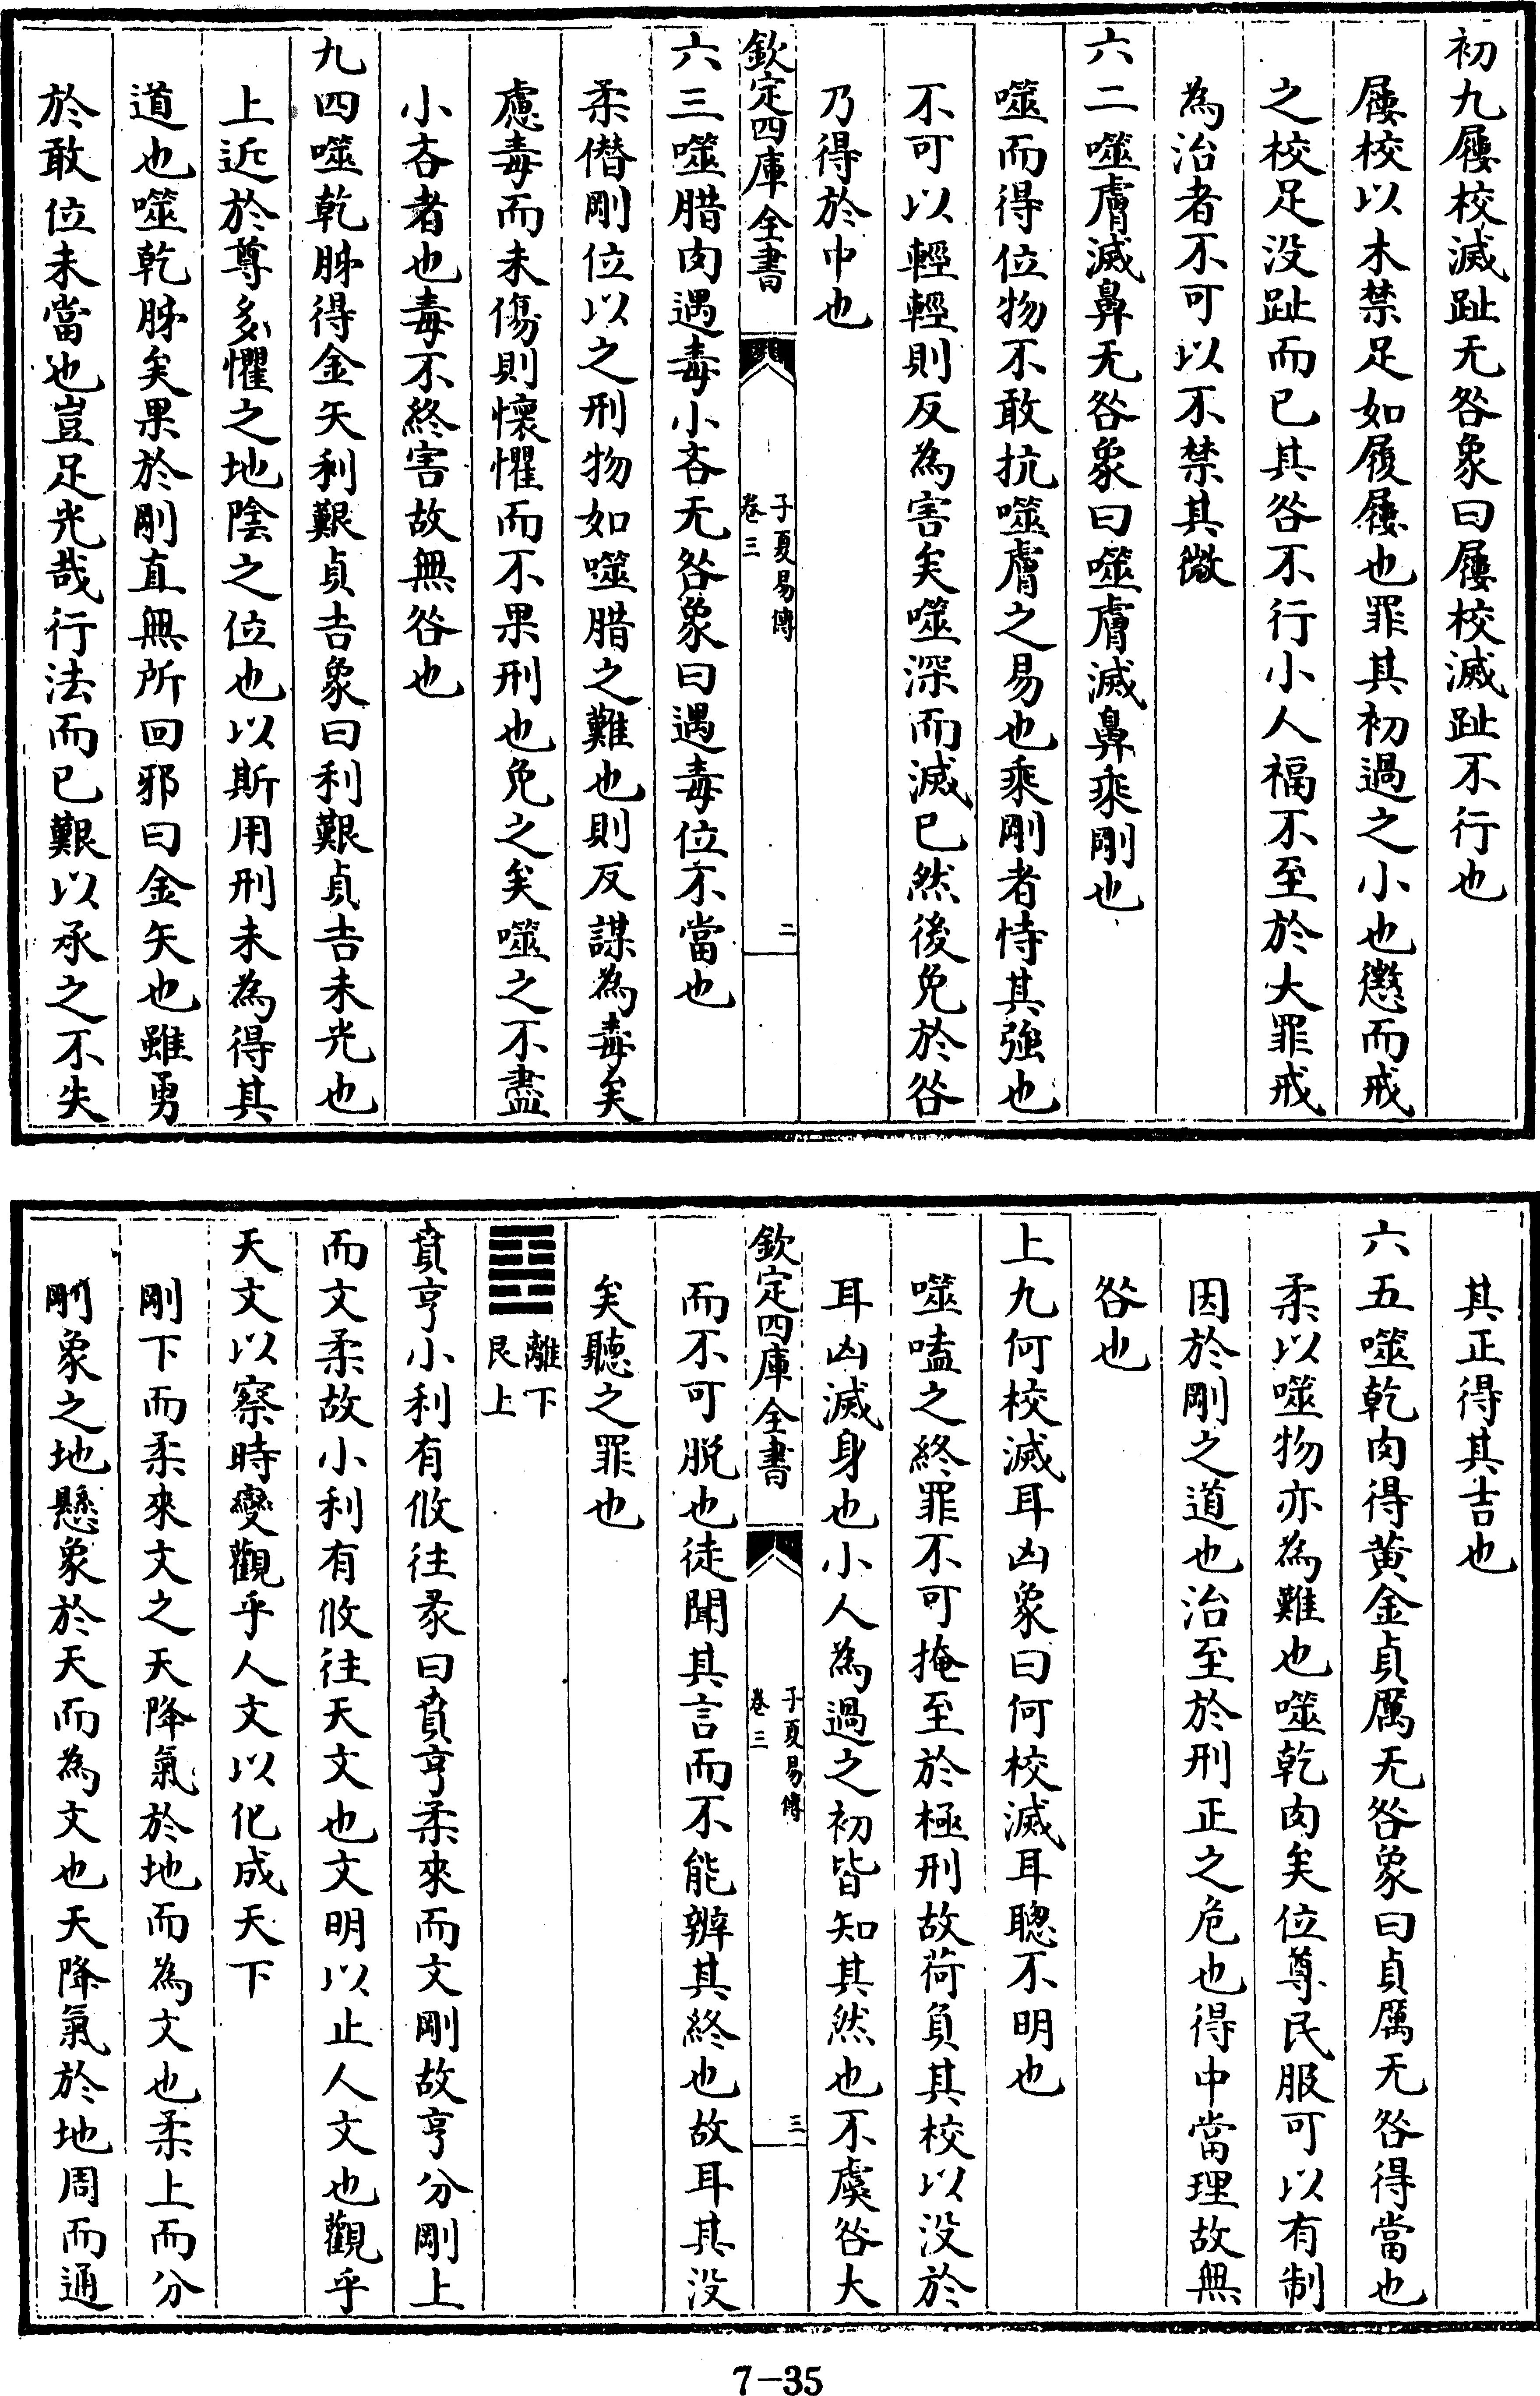 初九屨校滅趾无咎象曰屨校滅趾不行也
屨校以木禁足如履屨也罪其初過之小也懲而戒
之校足没趾而已其咎不行小人福不至於大罪戒
為治者不可以不禁其微
六二噬膚滅鼻无咎象曰噬膚滅鼻乘剛也
噬而得位物不敢抗噬膚之易也乘剛者恃其強也
不可以輕輕則反為害矣噬深而滅已然後免於咎
乃得於中也
欽定四庫全書
子夏易傳
卷三
二
六三噬腊肉遇毒小吝无咎象曰遇毒位不當也
柔僣剛位以之刑物如噬腊之難也則反謀為毒矣
慮毒而未傷則懷懼而不果刑也免之矣噬之不盡
小吝者也毒不終害故無咎也
九四噬乾胏得金矢利艱貞吉象曰利艱貞吉未光也
上近於尊多懼之地陰之位也以斯用刑未為得其
道也噬乾胏矣果於剛直無所回邪曰金矢也雖勇
於敢位未當也豈足光哉行法而已艱以承之不失
其正得其吉也
六五噬乾肉得黄金貞厲无咎象曰貞厲无咎得當也
柔以噬物亦為難也噬乾肉矣位尊民服可以有制
因於剛之道也治至於刑正之危也得中當理故無
咎也
上九何校滅耳凶象曰何校滅耳聰不明也
噬嗑之終罪不可掩至於極刑故荷負其校以没於
耳凶滅身也小人為過之初皆知其然也不虞咎大
欽定四庫全書
子夏易傳
卷三
三
而不可脱也徒聞其言而不能辨其終也故耳其没
矣聽之罪也
離下
艮上
賁亨小利有攸往彖曰賁亨柔來而文剛故亨分剛上
而文柔故小利有攸往天文也文明以止人文也觀乎
天文以察時變觀乎人文以化成天下
剛下而柔來文之天降氣於地而為文也柔上而分
剛象之地懸象於天而為文也天降氣於地周而通
7-35